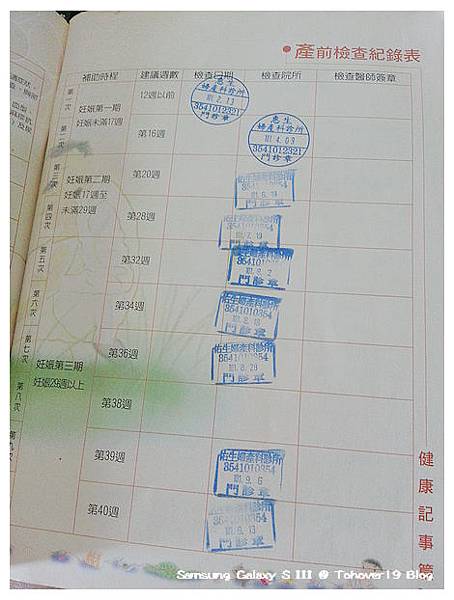 產前檢查紀錄表
補助時程 建議週數 檢查日期 檢查院所 檢查醫師簽章
第一次 妊娠第一期 妊娠未滿17週 12週以前 惠生 婦產科診所 101. 2. 13 3541012321 門診章
第二次 第16週 惠生 婦產科診所 101. 4. 09 3541012321 門診章
第三次 妊娠第二期 妊娠17週至未滿29週 第20週 佑生婦產科診所 3541010354 門診章
第四次 第28週 佑生婦產科診所 3541010354 門診章
第五次 第32週 佑生婦產科診所 3541010354 101. 8. 2 門診章
第六次 第34週 佑生婦產科診所 3541010354 門診章
第七次 妊娠第三期 妊娠29週以上 第36週 佑生婦產科診所 3541010354 門診章
第八次 第38週
第39週 佑生婦產科診所 3541010354 101. 9. 6 門診章
第40週 佑生婦產科診所 3541010354 101. 9. 13 門診章
健康記事
Samsung Galaxy S III @ Tohover19 Blog